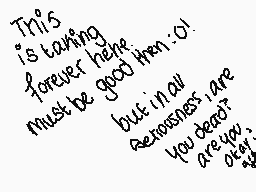 This
is taking
forever hehe
must be good then :O!
but in all
seriousness, are
you dead?
are you
okay?